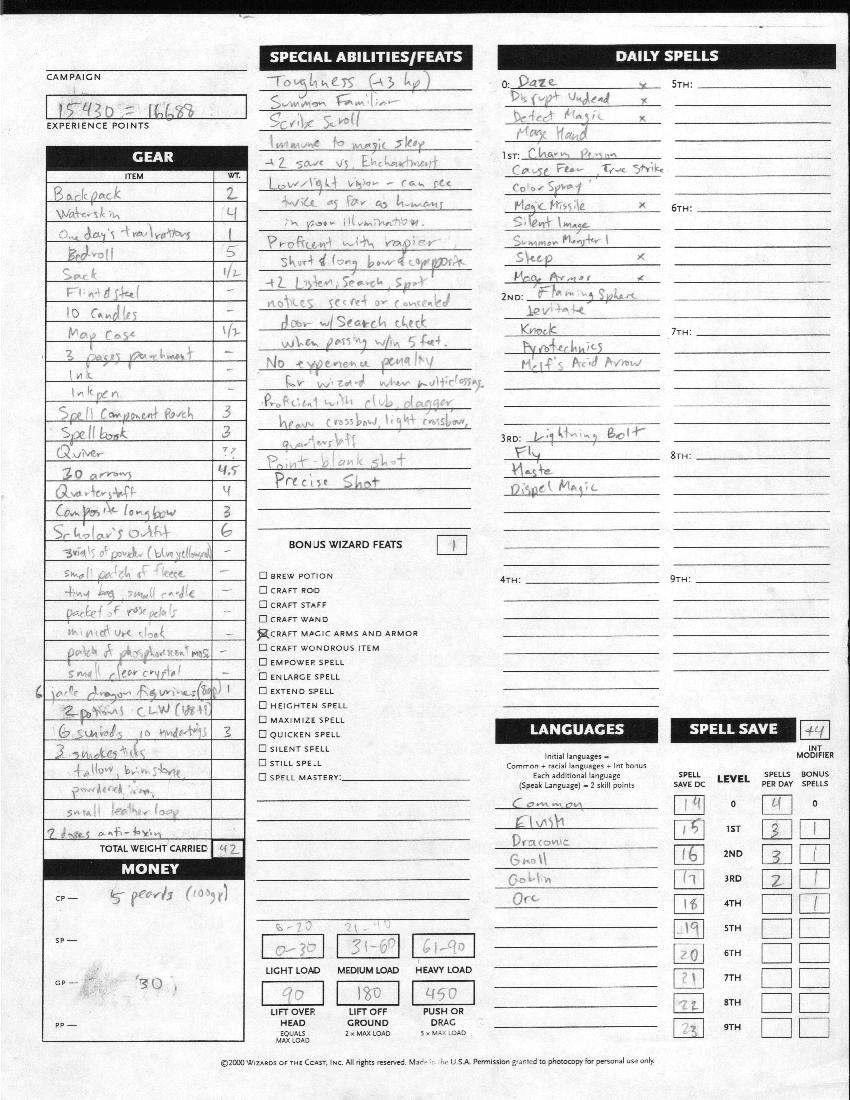 CAMPAIGN
15430 = 16688
EXPERIENCE POINTS
GEAR
ITEM WT.
Backpack 2
Waterskin 4
One day's trail rations 1
Bedroll 5
Sack 1/2
Flint & steel -
10 Candles -
Map Case 1/2
3 pages parchment -
Ink -
Inkpen -
Spell Component Pouch 3
Spellbook 3
Quiver ??
30 arrows 4.5
Quarterstaff 4
Composite longbow 3
Scholar's Outfit 6
3 vials of powder (blue yellow red) -
small patch of fleece -
tiny bag, small candle -
packet of rose petals -
miniature cloak -
patch of phosphorescent moss -
small clear crystal -
6 jade dragon figurines (8gp) 1
2 potions CLW (1d8+1)
6 sunrods, 10 tindertwigs 3
3 smokesticks
tallow, brimstone,
powdered iron,
small leather loop
2 doses anti-toxin
TOTAL WEIGHT CARRIED 42
MONEY
CP — 5 pearls (100gp)
SP —
GP — 30
PP —
SPECIAL ABILITIES/FEATS
Toughness (+3 hp)
Summon Familiar
Scribe Scroll
Immune to magic sleep
+2 save vs. Enchantment
Low-light vision - can see
twice as far as humans
in poor illumination.
Proficient with rapier
short & long bow & composite
+2 Listen, Search, Spot
notices secret or concealed
door w/Search check
when passing w/in 5 feet.
No experience penalty
for wizard when multiclassing
Proficient with club, dagger,
heavy crossbow, light crossbow,
quarterstaff
Point-blank shot
Precise Shot
BONUS WIZARD FEATS 1
BREW POTION
CRAFT ROD
CRAFT STAFF
CRAFT WAND
CRAFT MAGIC ARMS AND ARMOR
CRAFT WONDROUS ITEM
EMPOWER SPELL
ENLARGE SPELL
EXTEND SPELL
HEIGHTEN SPELL
MAXIMIZE SPELL
QUICKEN SPELL
SILENT SPELL
STILL SPELL
SPELL MASTERY:
0-20 21-40
0-30 31-60 61-90
LIGHT LOAD MEDIUM LOAD HEAVY LOAD
90 180 450
LIFT OVER HEAD LIFT OFF GROUND PUSH OR DRAG
EQUALS MAX LOAD 2 x MAX LOAD 5 x MAX LOAD
DAILY SPELLS
0: Daze x
Disrupt Undead x
Detect Magic x
Mage Hand
1ST: Charm Person
Cause Fear, True Strike
Color Spray
Magic Missile x
Silent Image
Summon Monster I
Sleep x
Mage Armor x
2ND: Flaming Sphere
Levitate
Knock
Pyrotechnics
Melf's Acid Arrow
3RD: Lightning Bolt
Fly
Haste
Dispel Magic
4TH:
5TH:
6TH:
7TH:
8TH:
9TH:
LANGUAGES
Initial languages =
Common + racial languages + Int bonus
Each additional language
(Speak Language) = 2 skill points
Common
Elvish
Draconic
Gnoll
Goblin
Orc
SPELL SAVE +4
INT MODIFIER
SPELL SAVE DC LEVEL SPELLS PER DAY BONUS SPELLS
14 0 4 0
15 1ST 3 1
16 2ND 3 1
17 3RD 2 1
18 4TH 1
19 5TH
20 6TH
21 7TH
22 8TH
23 9TH
©2000 WIZARDS OF THE COAST, INC. All rights reserved. Made in the U.S.A. Permission granted to photocopy for personal use only.